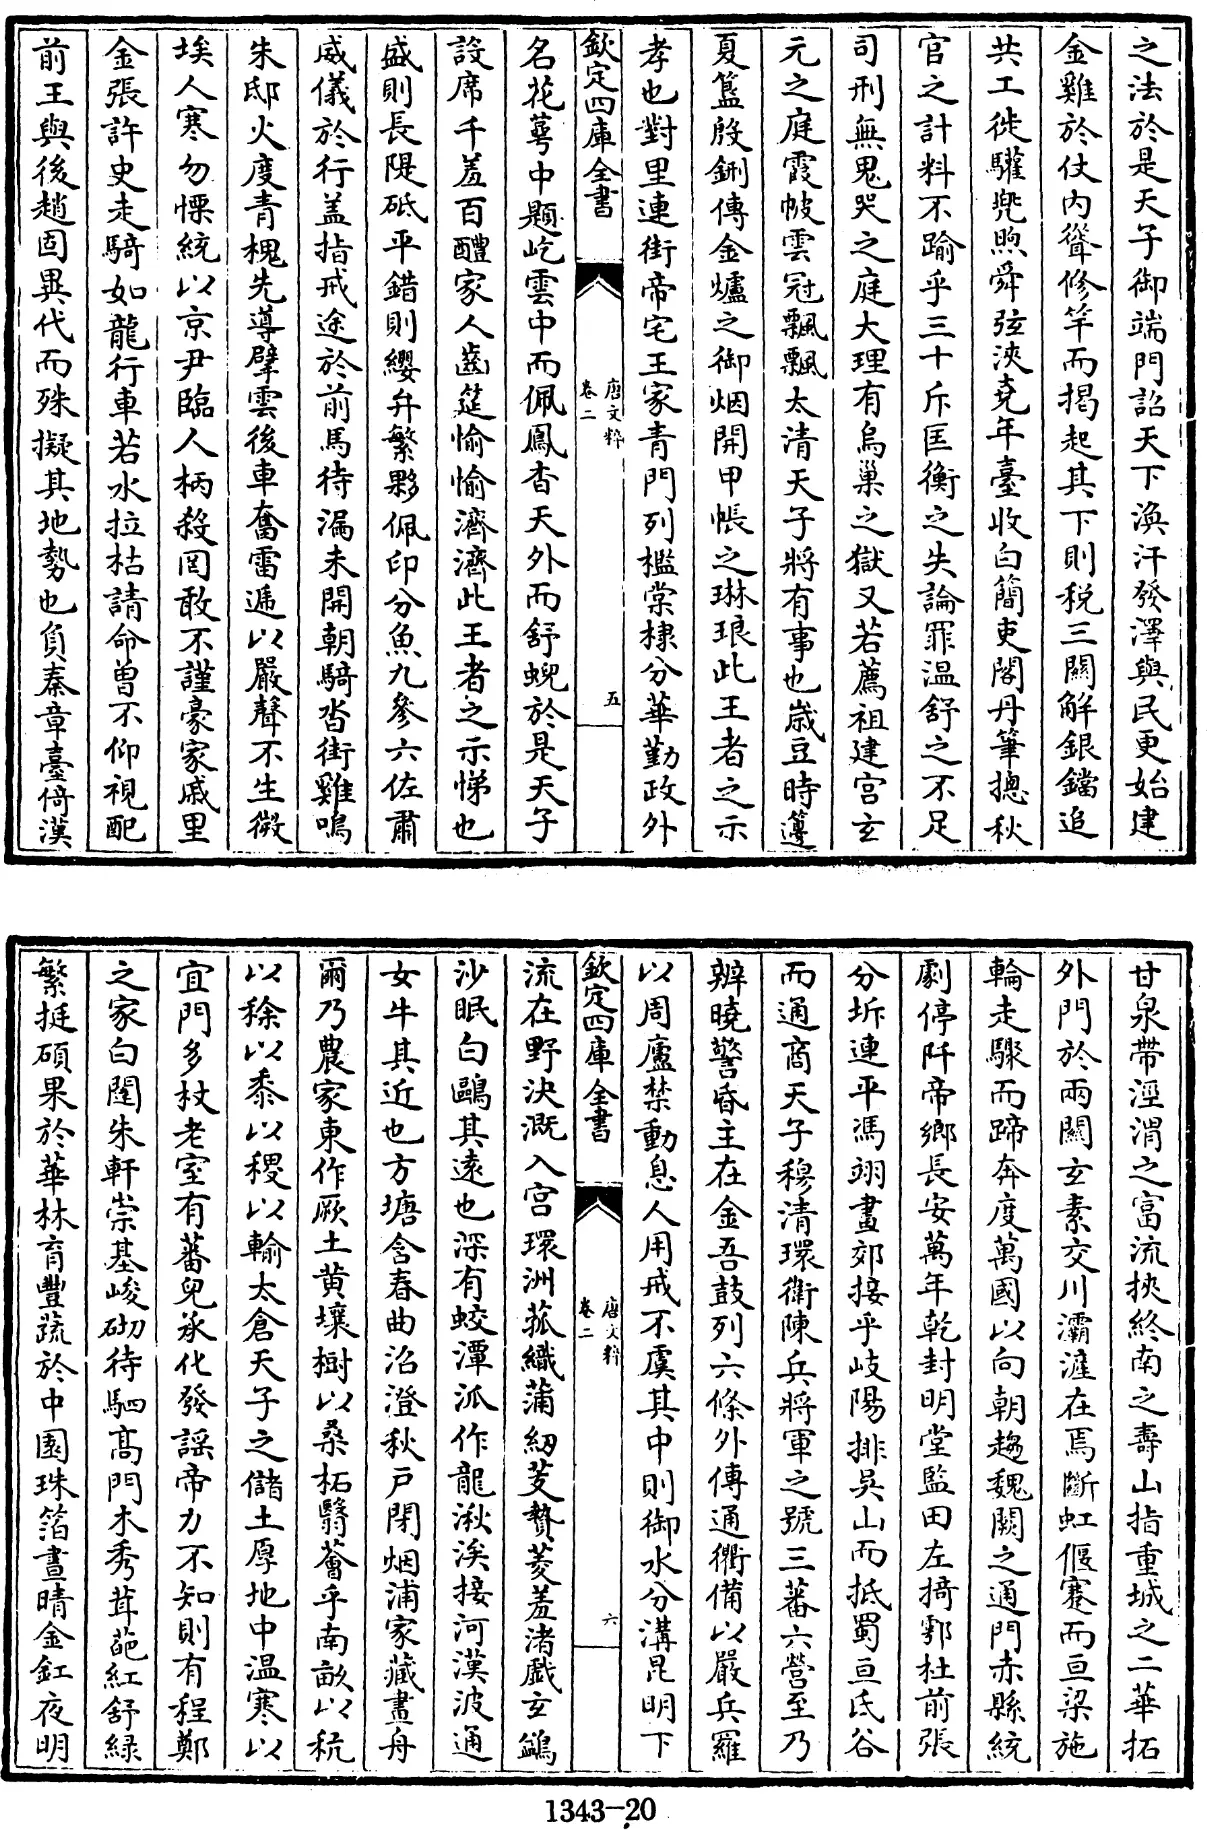 之法於是天子御端門詔天下渙汗發澤與民更始建
金雞於仗内聳修竿而揭起其下則税三關解銀鐺追
共工徙驩兜煦舜弦浹堯年臺收白簡吏閣丹筆摠秋
官之計料不踰乎三十斤匡衡之失論罪温舒之不足
司刑無鬼哭之庭大理有烏巢之獄又若薦祖建宫玄
元之庭霞帔雲冠飄飄太清天子將有事也嵗豆時籩
夏簋殷鉶傳金爐之御烟開甲帳之琳琅此王者之示
孝也對里連街帝宅王家青門列檻棠棣分華勤政外
欽定四庫全書
唐文粹
卷二
五
名花萼中題屹雲中而佩鳳杳天外而舒蜺於是天子
設席千羞百醴家人齒筵愉愉濟濟此王者之示悌也
盛則長隄砥平錯則纓弁繁夥佩印分魚九參六佐肅
威儀於行盖指戒途於前馬待漏未開朝騎沓街雞鳴
朱邸火度青槐先導擘雲後車奮雷逓以嚴聲不生微
埃人寒勿慄統以京尹臨人柄殺罔敢不謹豪家戚里
金張許史走騎如龍行車若水拉枯請命曽不仰視配
前王與後趙固異代而殊擬其地勢也負秦章臺倚漢
甘泉帶涇渭之富流挾終南之壽山指重城之二華拓
外門於兩關玄素交川灞滻在焉斷虹偃蹇而亘梁施
輪走驟而蹄奔度萬國以向朝趨魏闕之通門赤縣統
劇停阡帝鄉長安萬年乾封明堂監田左掎鄠杜前張
分坼連平馮翊畫郊接乎岐陽排吳山而抵蜀亘氐谷
而通商天子穆清環衛陳兵將軍之號三蕃六營至乃
辨曉警昏主在金吾鼓列六條外傳通衢備以嚴兵羅
以周廬禁動息人用戒不虞其中則御水分溝昆明下
欽定四庫全書
唐文粹
卷二
六
流在野決溉入宫環洲菰織蒲紉芰贄菱羞渚戲玄鷁
沙眠白鷗其遠也深有蛟潭派作龍湫涘接河漢波通
女牛其近也方塘含春曲沼澄秋戸閉烟浦家藏畫舟
爾乃農家東作厥土黄壤樹以桑柘翳薈乎南畝以秔
以稌以黍以稷以輸太倉天子之儲土厚地中温寒以
宜門多杖老室有蕃兒承化發謡帝力不知則有程鄭
之家白閮朱軒崇基峻砌待駟髙門木秀茸葩紅舒緑
繁挺碩果於華林育豐蔬於中園珠箔晝晴金釭夜明
1343-20